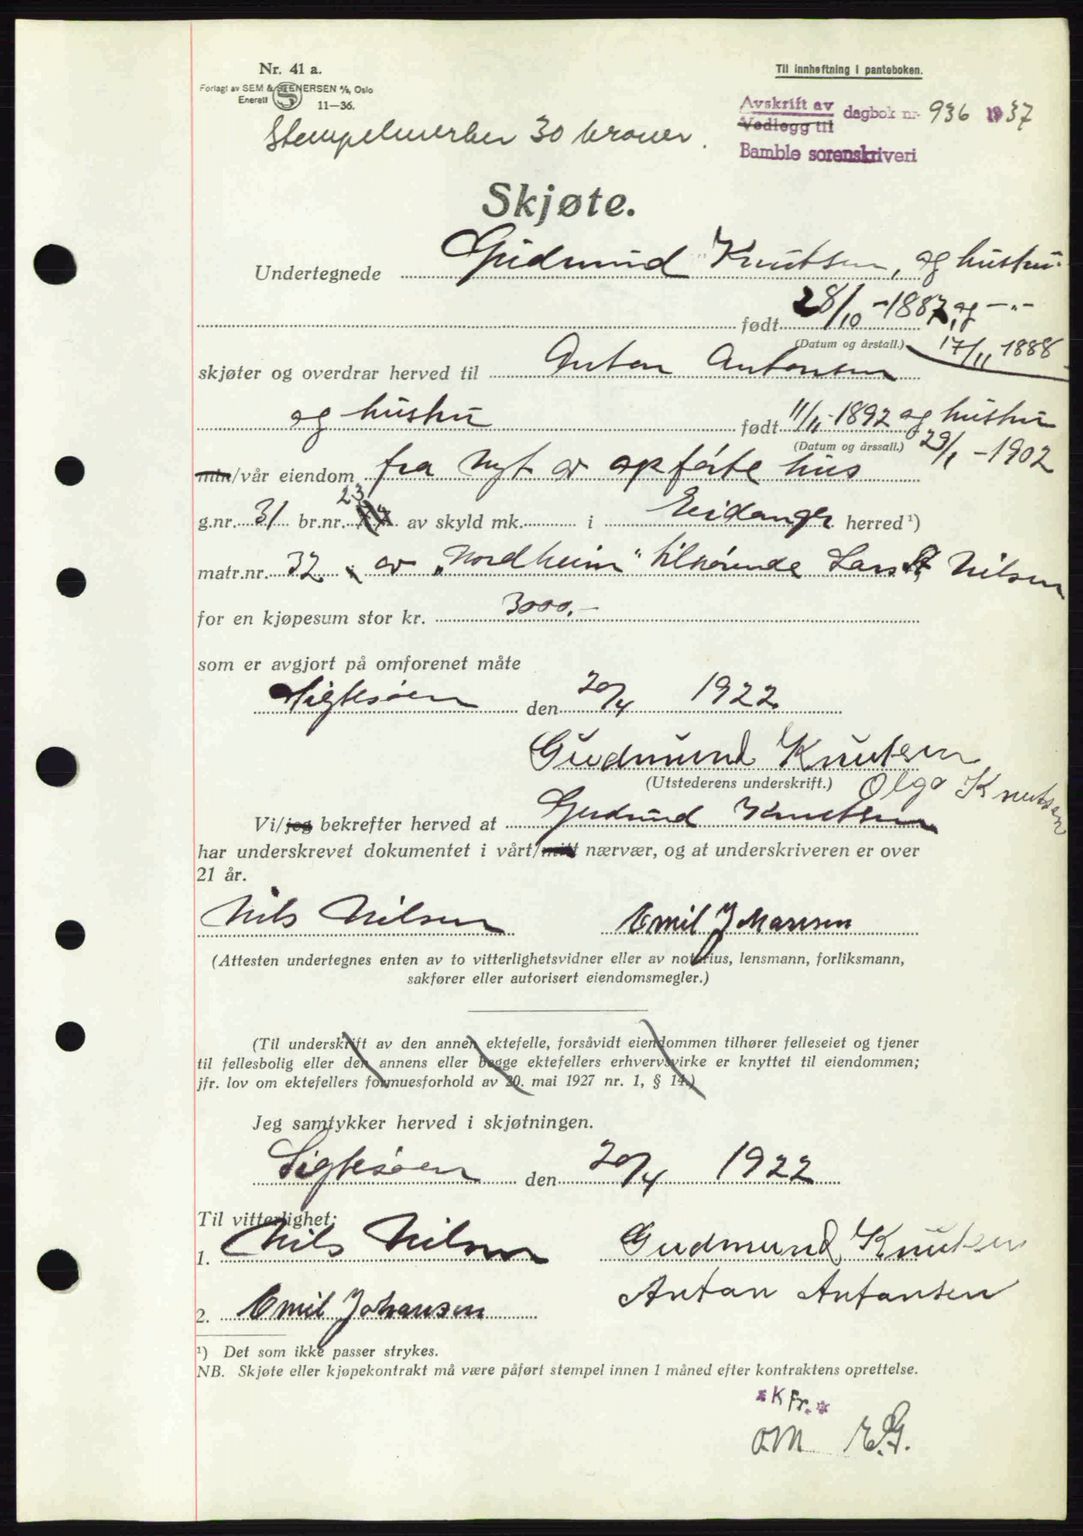 Nr. 41 a.
Forlagt av SEM & STENERSEN A/S, Oslo
Enerett 11—36.
Til innheftning i panteboken.
Avskrift av
Vedlegg til
dagbok nr. 936 1937
Bamble sorenskriveri
Stempelmerker 30 kroner.
Skjøte.
Undertegnede Gudmund Knutsen, og hustru
født 28/10 -1887, og —"—
(Datum og årstall.) 17/11 1888
skjøter og overdrar herved til Anton Antonsen
og hustru født 11/11-1892 og hustru
(Datum og årssall.) 29/1 -1902
min/vår eiendom fra nyt av opførte hus
23
g.nr. 31 br.nr. av skyld mk. i Eidanger herred ¹)
matr.nr. 32 av "Nordheim" tilhørende Lars Nilsen
for en kjøpesum stor kr. 3000,-
som er avgjort på omforenet måte
Sigtesøen den 20/4 1922
Gudmund Knutsen
(Utstederens underskrift.) Olga Knutsen
Vi/jeg bekrefter herved at Gudmund Knutsen
har underskrevet dokumentet i vårt/mitt nærvær, og at underskriveren er over
21 år.
Nils Nilsen Emil Johansen
(Attesten undertegnes enten av to vitterlighetsvidner eller av notarius, lensmann, forliksmann,
sakfører eller autorisert eiendomsmegler.)
(Til underskrift av den annen ektefelle, forsåvidt eiendommen tilhører felleseiet og tjener
til fellesbolig eller den annens eller begge ektefellers erhvervsvirke er knyttet til eiendommen;
jfr. lov om ektefellers formuesforhold av 20. mai 1927 nr. 1, § 14.)
Jeg samtykker herved i skjøtningen.
Sigtesøen den 20/4 1922
Til vitterlighet:
1. Nils Nilsen Gudmund Knutsen
Anton Antonsen
2. Emil Johansen
¹) Det som ikke passer strykes.
NB. Skjøte eller kjøpekontrakt må være påført stempel innen 1 måned efter kontraktens oprettelse.
*K Fr.*
OM E.G.